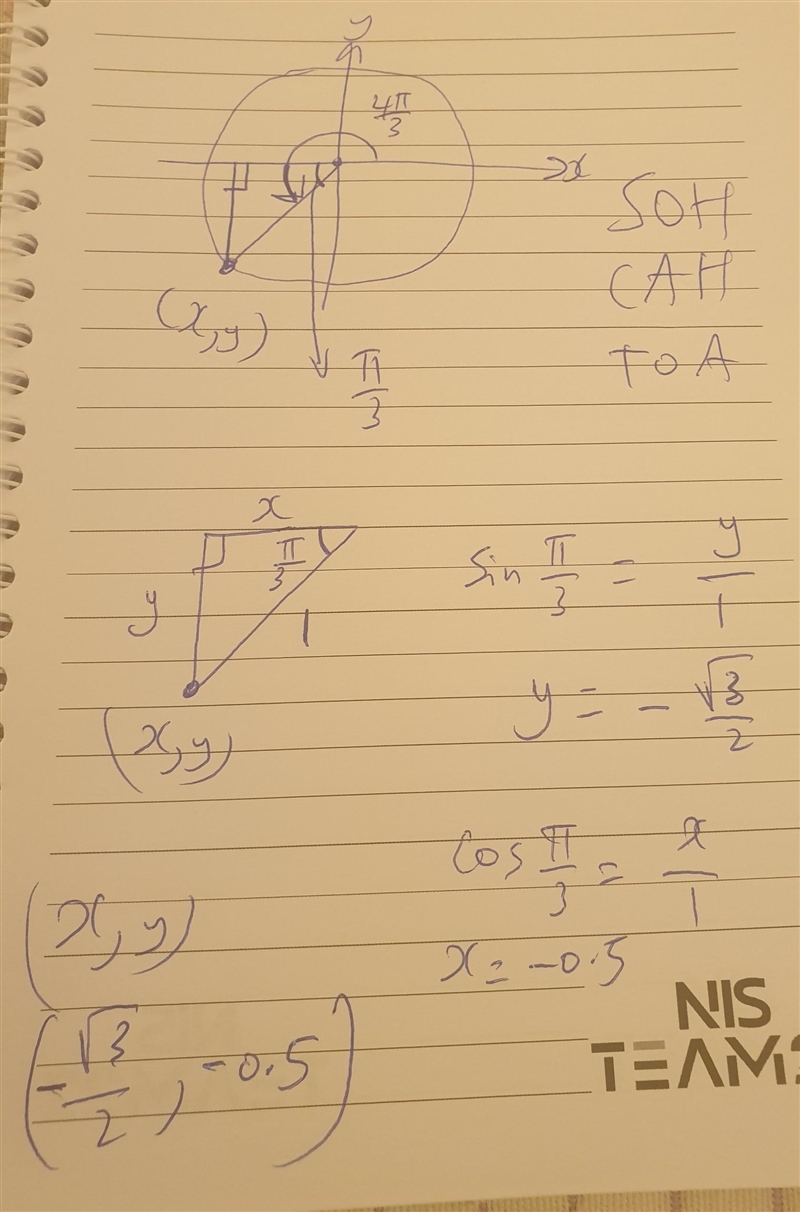 y
4π/3
x
SOH
CAH
TOA
(x,y)
π/3
x
π/3
y
1
(x,y)
sin π/3 = y/1
y = - √3/2
cos π/3 = x/1
x = -0.5
(x, y)
(-√3/2, -0.5)
NIS
TEAMS